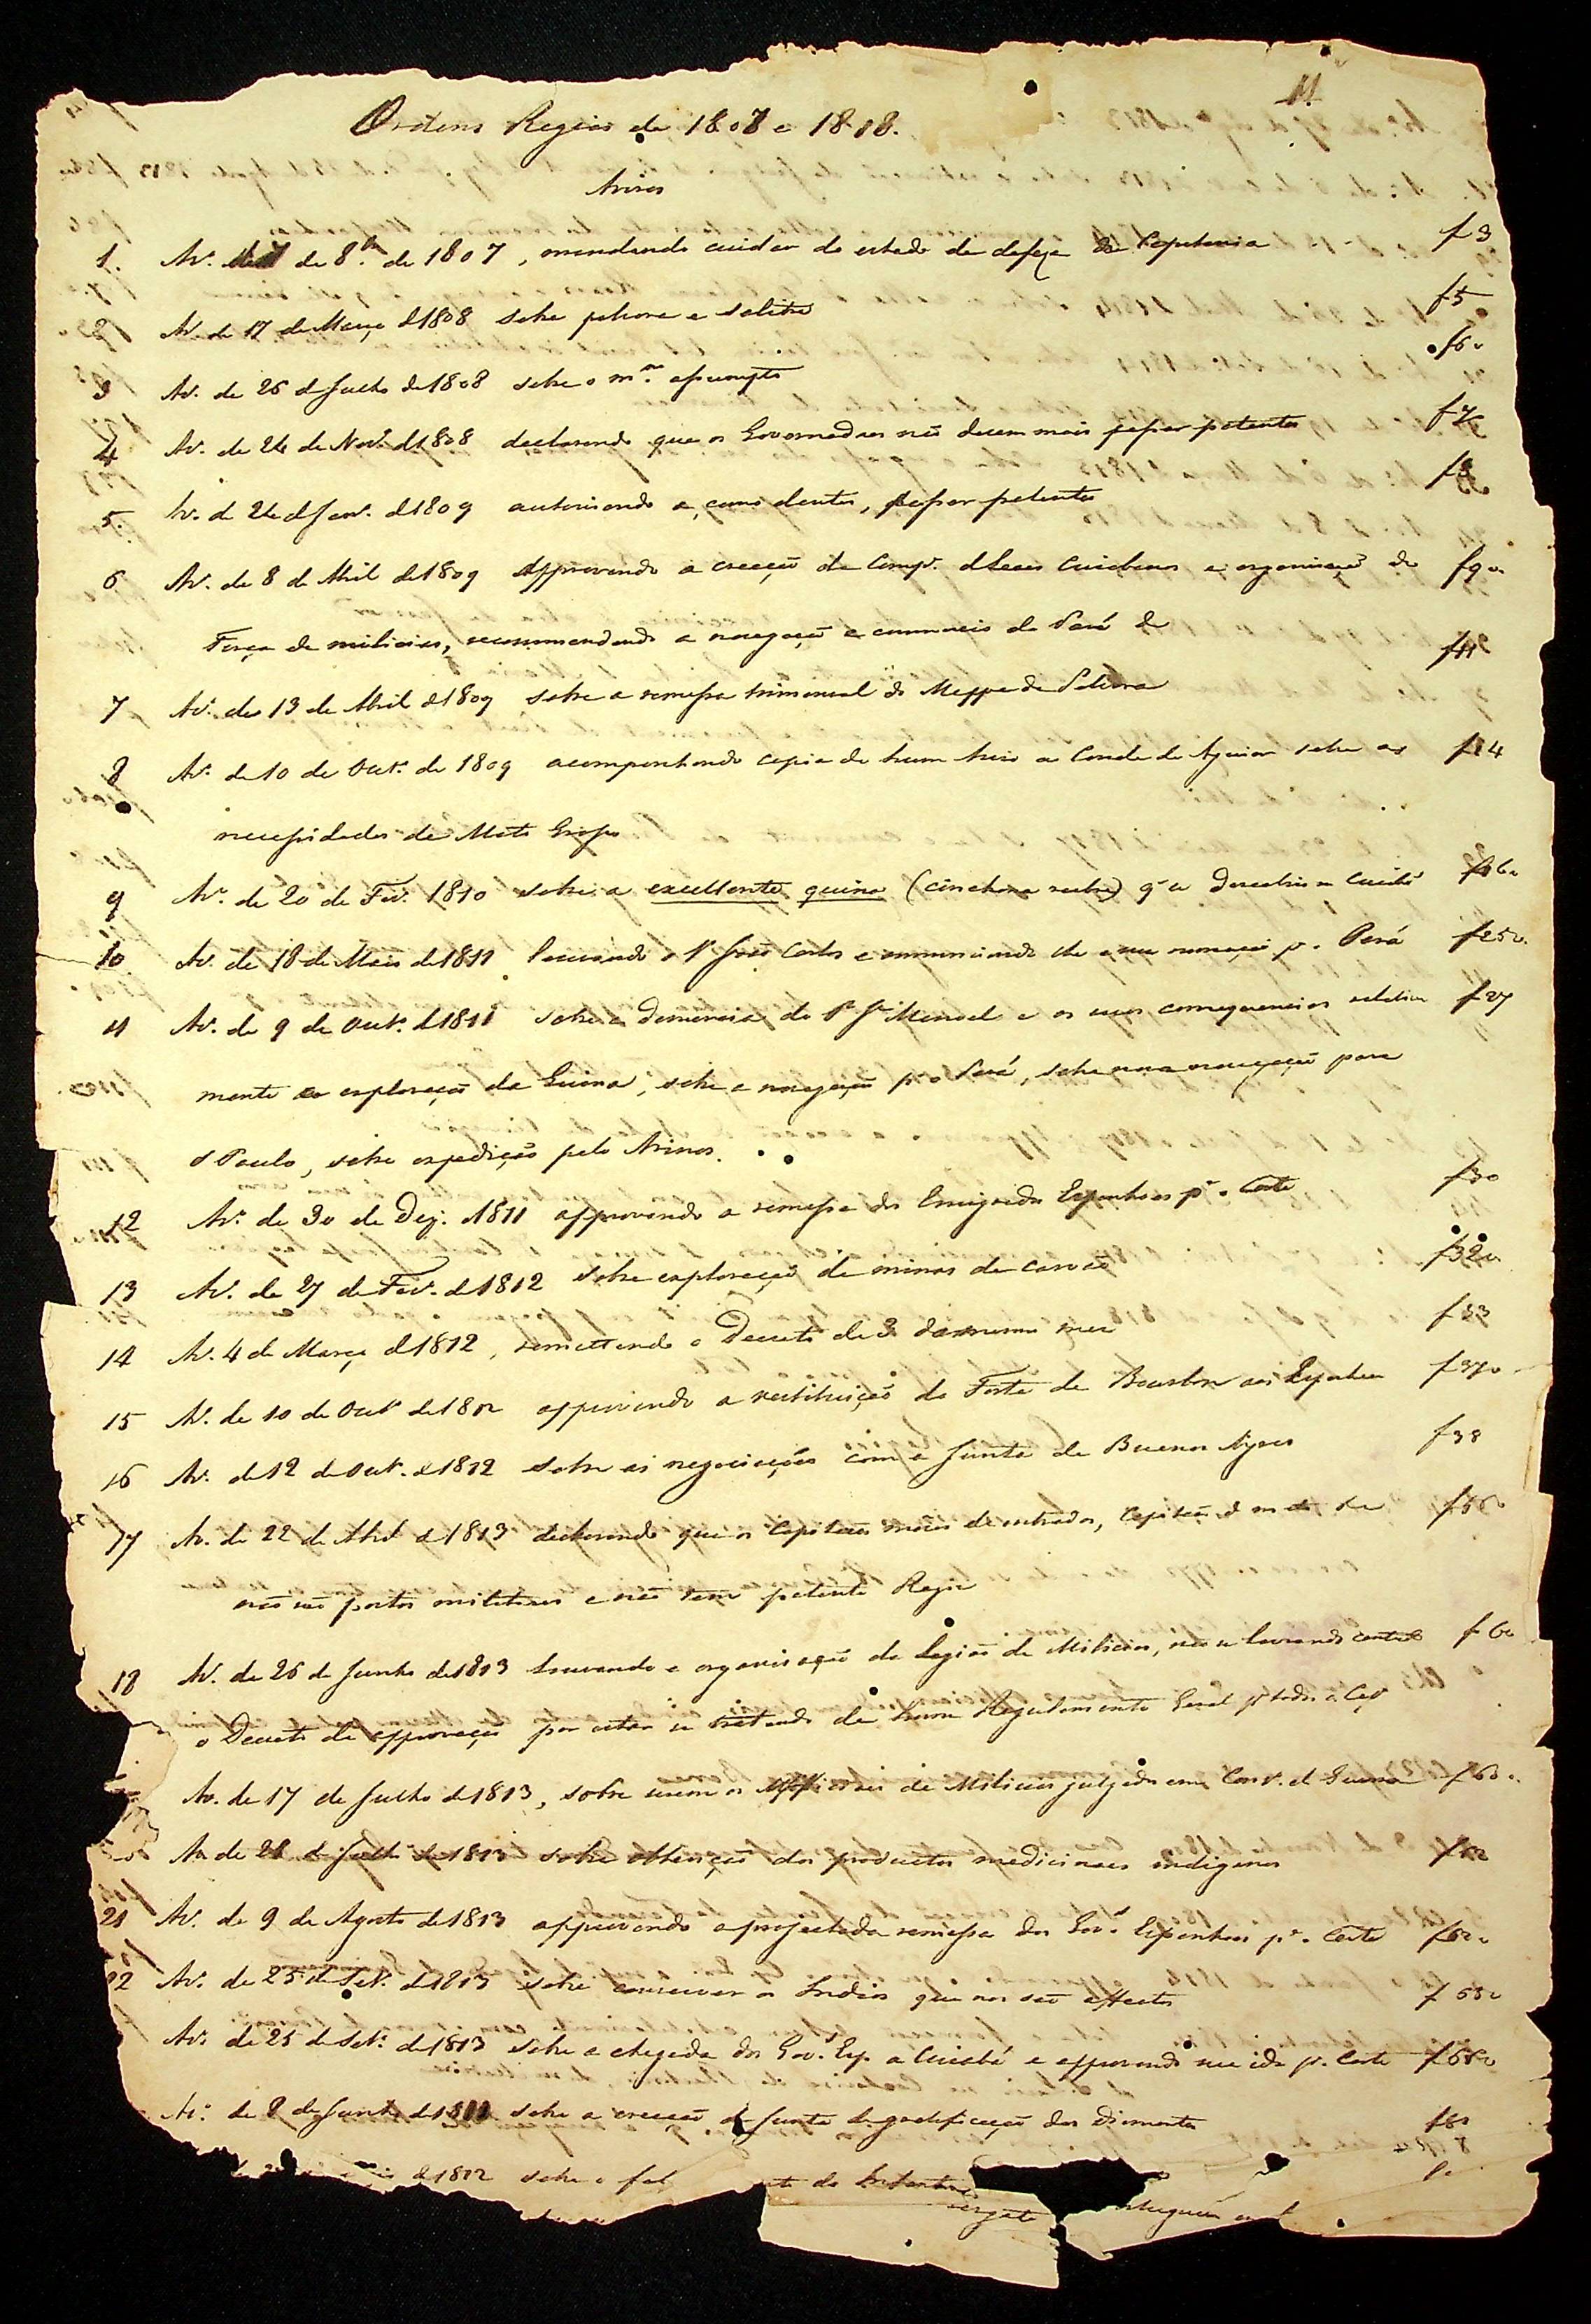 11
Ordens Regias de 1807 e 1808.
Avisos
1. Av. de 8.bro de 1807, mandando cuidar do estado de defeza da Capitania f 3
Av. de 17 de Março d 1808 sobre polvora e salitre f 5
3 Av. de 26 de Julho de 1808 sobre o m.mo assumpto f 6v
4 Av. de 24 de Nov. d 1808 declarando que os Governadores não devem mais passar patentes f 7
5. Av. d 24 d Jan. d 1809 autorisando a, como dantes, passar patentes f 8
6 Av. de 8 de Abril de 1809 approvando a creação da Comp. d Leaes Cuiabanos e organisação da f 9v
Força de milicias, recommendando a navegação e commercio do Pará &
7 Av. de 13 de Abril d 1809 sobre a remessa trimensal do Mappa da Polvora f 11
8 Av. de 10 de Out. de 1809 acompanhando copia de hum Aviso ao Conde de Aguiar sobre as f 14
necessidades de Mato Grosso
9 Av. de 20 de Fev. 1810 sobre a excellente quina (cinchona rubra) q se descobrio em Cuiabá f 16v
10 Av. de 18 de Maio de 1811 louvando o João Carlos e annunciando lhe a sua nomeação p. o Pará f 25v.
11 Av. de 9 de Out. d 1811 sobre a demencia do P.e J.e Manoel e as suas consequencias relativa f 27
mente a exploração da Quina, sobre a navegação p.a o Pará, sobre nova navegação para
S Paulo, sobre expedição pelo Arinos.
12 Av. de 30 de Dez. 1811 approvando a remessa dos Emigrados Espanhoes p.a a Corte f 30
13 Av. de 27 de Fev. d 1812 sobre exploração de minas de carvão f 32v
14 Av. 4 de Março d 1812, remettendo o Decreto de 3 do mesmo mez f 33
15 Av. de 10 de Out. de 1812 approvando a restituição do Forte de Bourbon aos Espanhoes f 37v
16 Av. d 12 de Out. d 1812 sobre as negociações com a Junta de Buenos Ayres f 38
17 Av. de 22 de Abril d 1813 declarando que os Capitães móres de entradas, Capitães d mato &a f 56v
não são postos militares e não tem patente Regia
18 Av. de 26 de Junho de 1813 louvando a organisação da Legião de Milicias, não se lavrando contudo f 60
o Decreto de approvação por estar se tratando de hum Regulamento Geral p. todas as Cap.
Av. de 17 de Julho d 1813, sobre serem os Officiaes de Milicias julgados em Cons. d Guerra f 60v.
Av. de 28 d Julho de 1813 sobre obtenção dos productos medicinaes indigenas
21 Av. de 9 de Agosto de 1813 approvando a projectada remessa dos Gov.s Espanhoes p.a a Corte
22 Av. de 25 d Set. d 1813 sobre conservar os Indios que nos são affectos
Av. de 25 de Set. de 1813 sobre a chegada dos Gov.s Esp. a Cuiabá e approvando sua ida p. a Corte
Av. de 8 de Junho d sobre a creação d Junta de gratificação dos Diamantes f 80
d 1812 sobre o fal do Infante